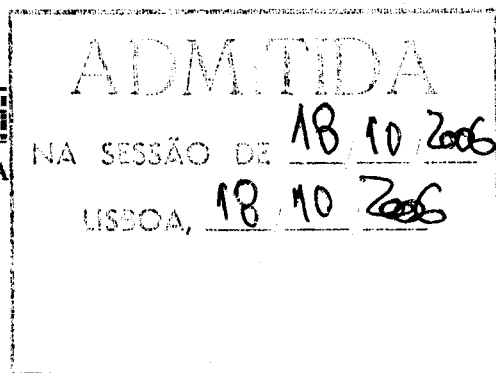 ADMITIDA
NA SESSÃO DE 18/10/2006
LISBOA, 18/10/2006